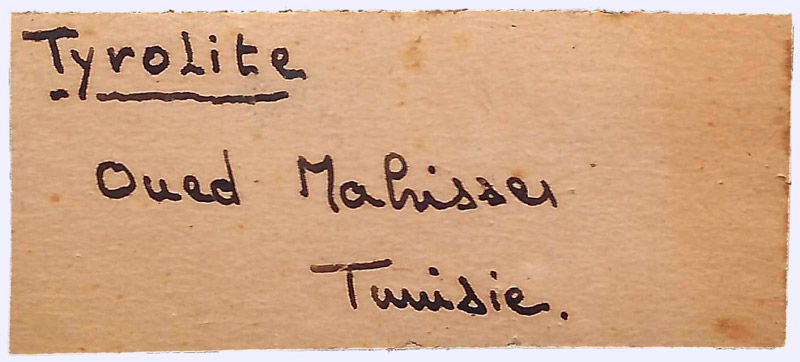 Tyrolite
Oued Mahisser
Tunisie.